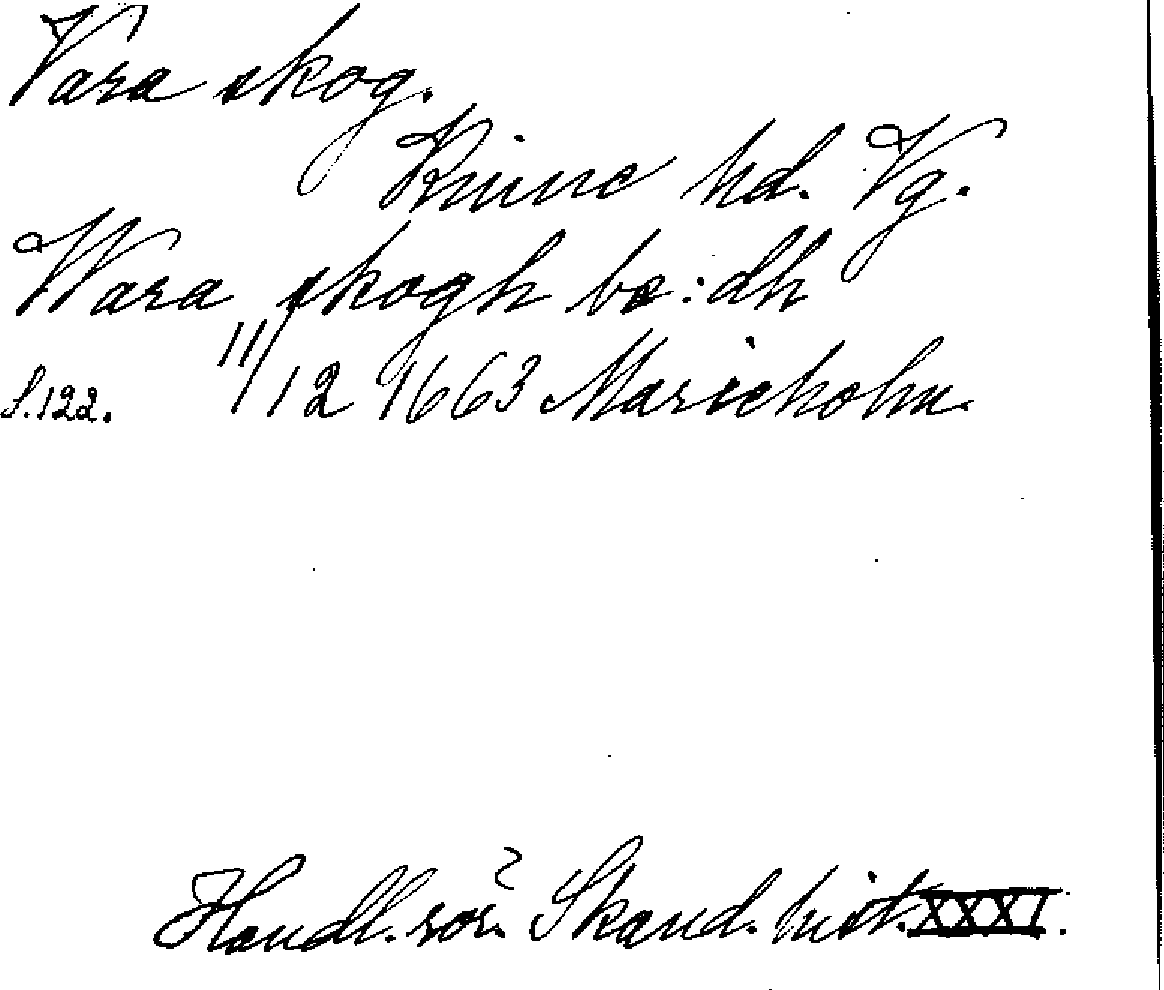 Vara skog.
Kinne hd. Vg.
Wara skogh be:dh
S.122. 11/12 1663 Marieholm.
Handl. rör. Skand. hist. XXXI.